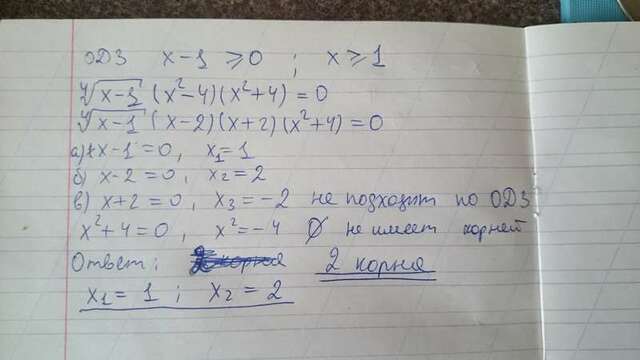 ОДЗ x-1 ⩾0 ; x⩾1
∜x-1 (x²-4)(x²+4)=0
∜x-1 (x-2)(x+2)(x²+4)=0
а) x-1=0, x₁=1
б) x-2=0, x₂=2
в) x+2=0, x₃=-2 не подходит по ОДЗ
x²+4=0, x²=-4 ∅ не имеет корней
Ответ: 2 корня
x₁=1 ; x₂=2